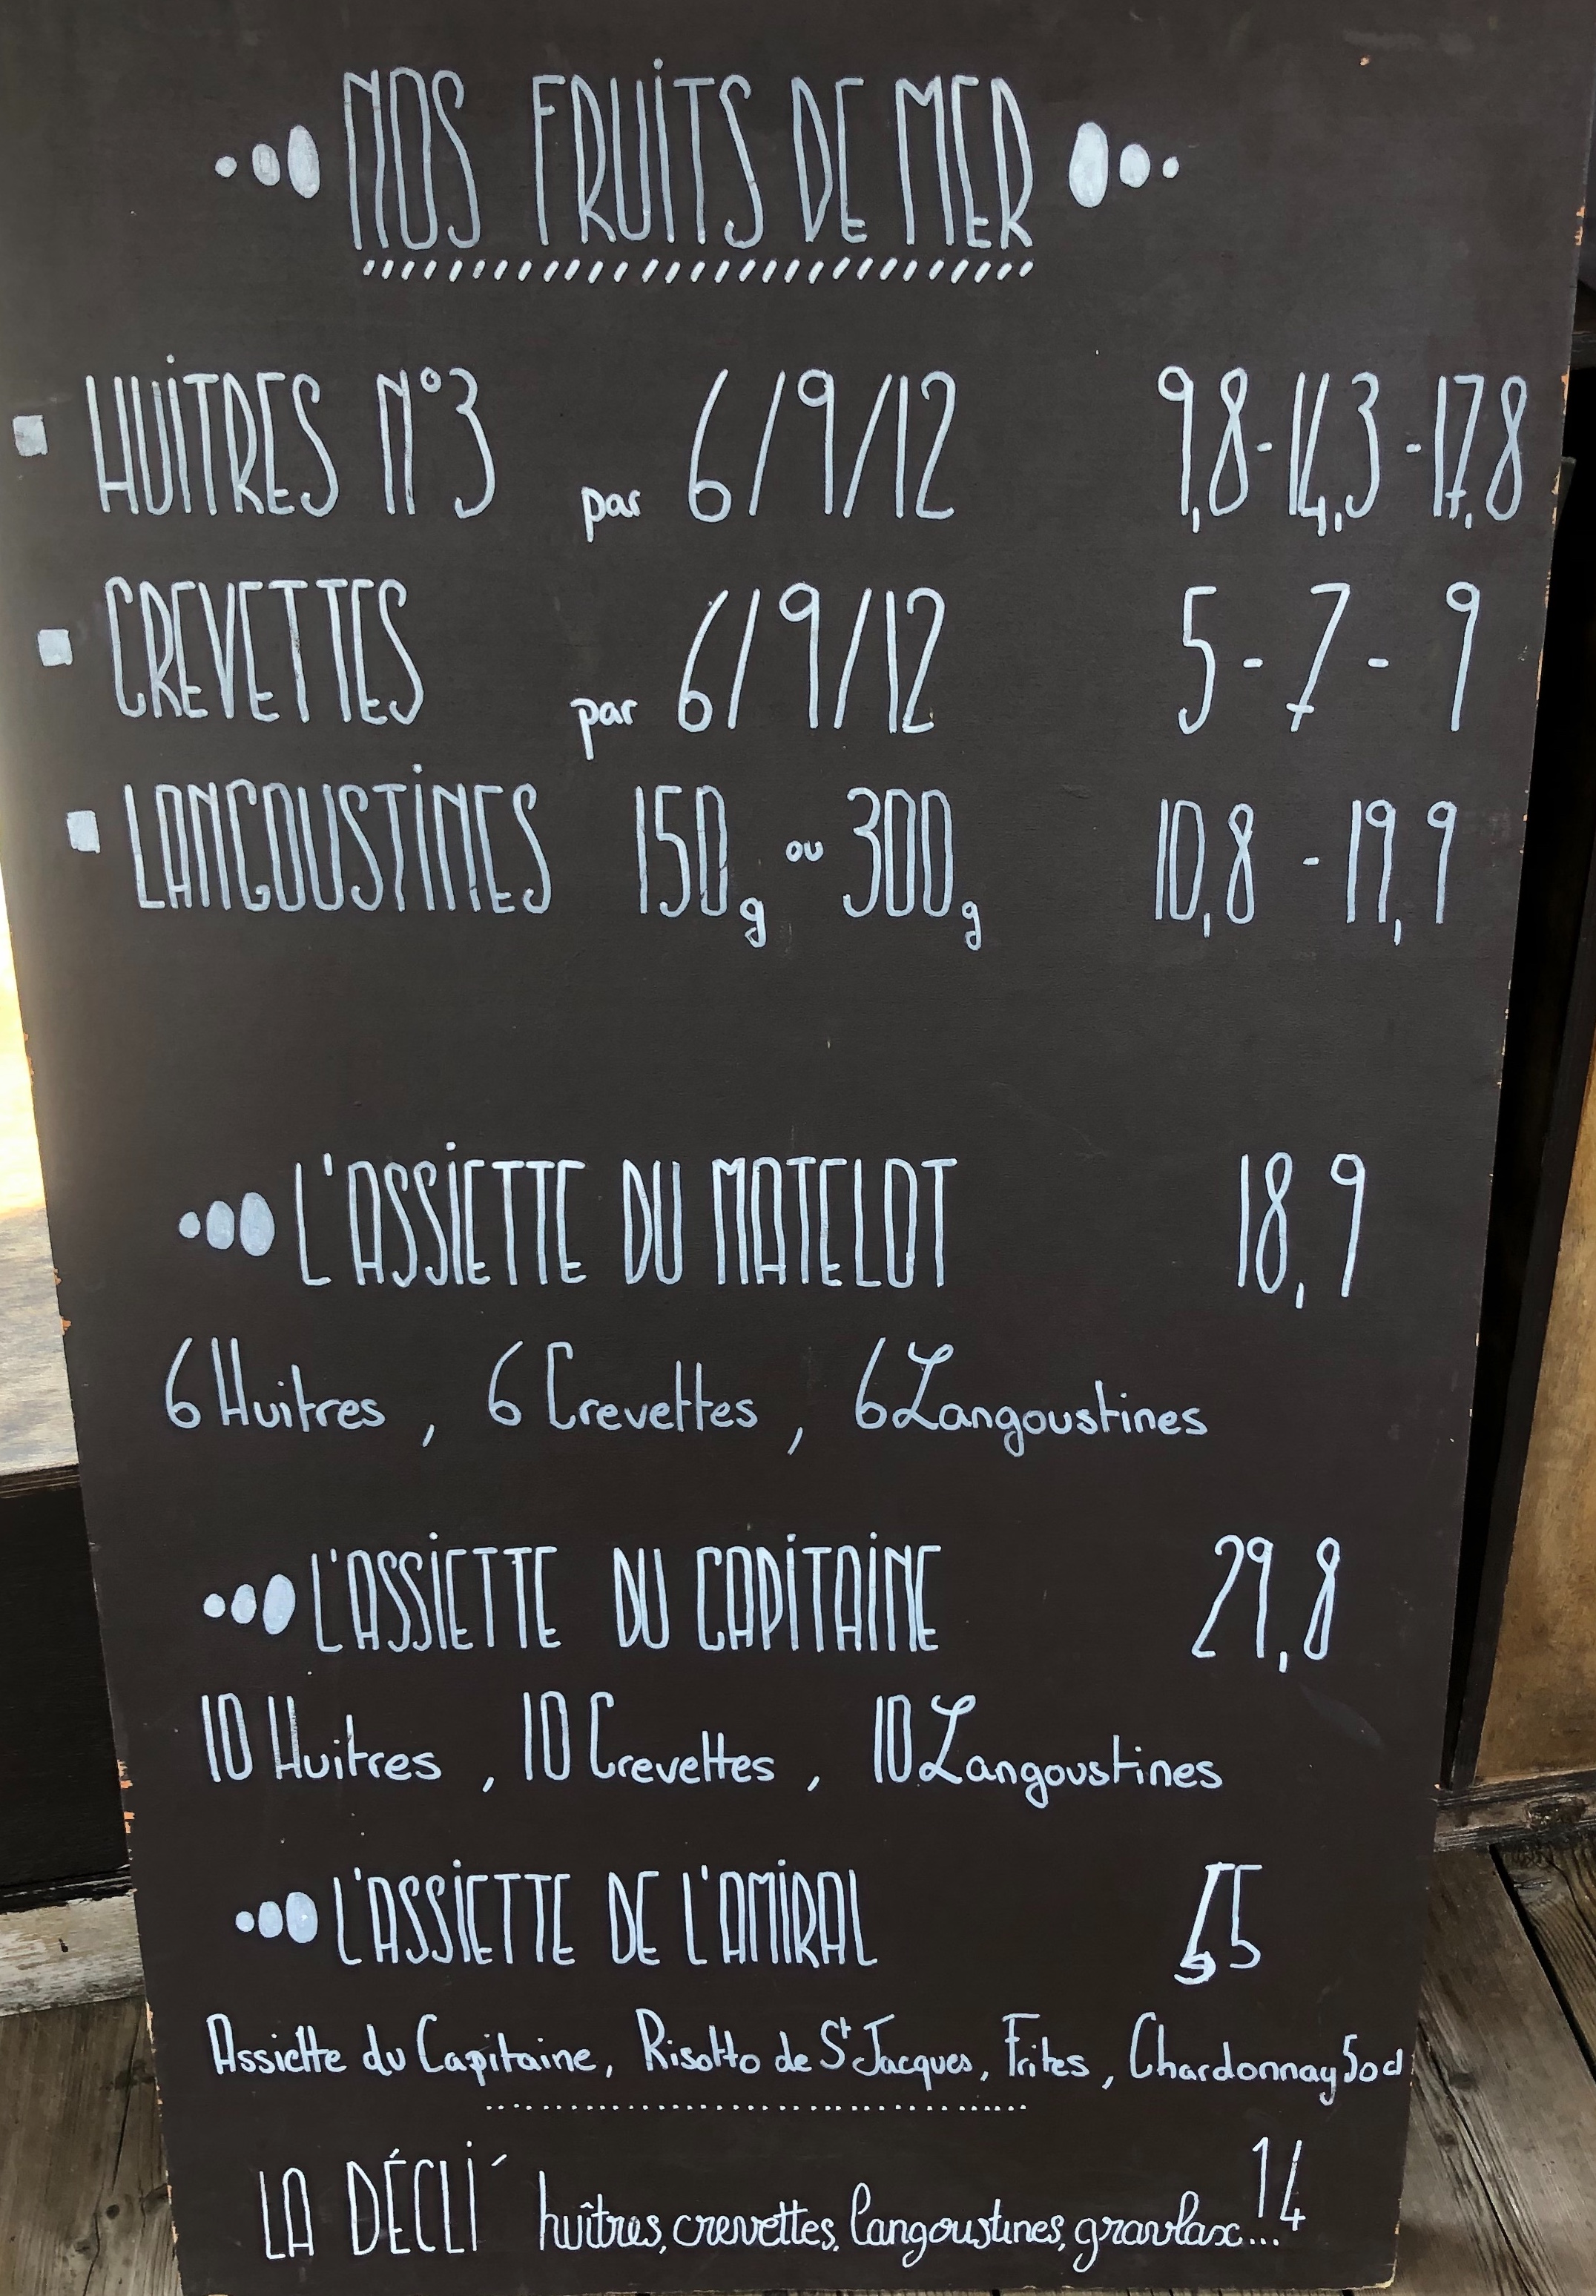 NOS FRUITS DE MER
HUITRES N°3 par 6/9/12 9,8-14,3-17,8
CREVETTES par 6/9/12 5-7-9
LANGOUSTINES 150g ou 300g 10,8-19,9
L'ASSIETTE DU MATELOT 18,9
6 Huitres, 6 Crevettes, 6 Langoustines
L'ASSIETTE DU CAPITAINE 29,8
10 Huitres, 10 Crevettes, 10 Langoustines
L'ASSIETTE DE L'AMIRAL 55
Assiette du Capitaine, Risotto de St Jacques, Frites, Chardonnay 50cl
LA DÉCLI' huîtres, crevettes, langoustines, gravlax... 14